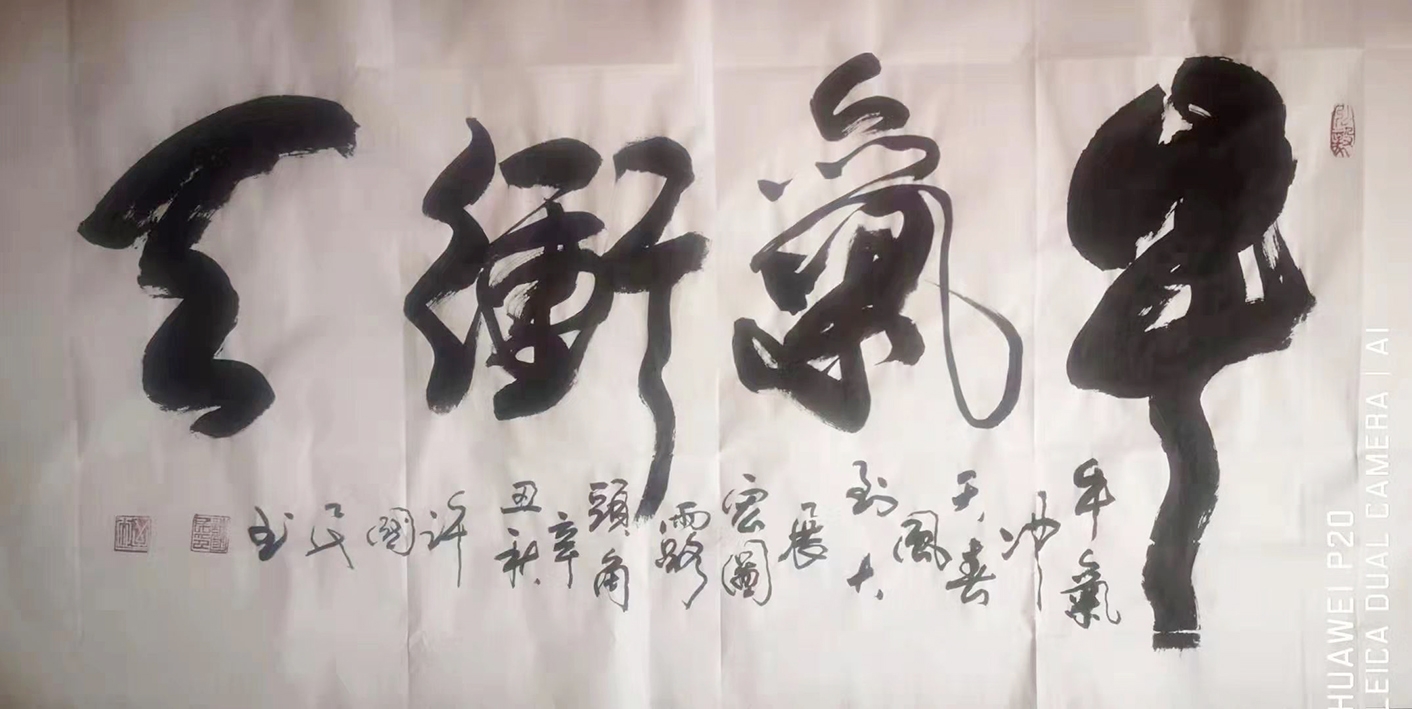 牛氣衝天
牛氣
冲
天春
風
到大
展
宏圖
露
頭角
辛
丑秋
許國民书
HUAWEI P20
LEICA DUAL CAMERA | AI